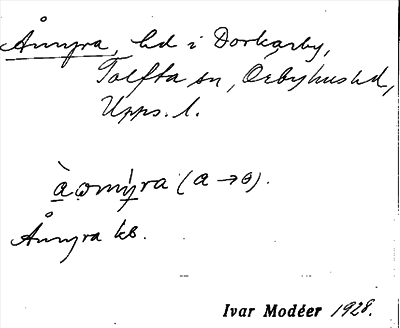 Åmyra, hd i Dorkarby,
Tolfta sn, Örbyhus hd,
Upps. l.
àǫmýra (a → ɵ).
Åmyra kb.
Ivar Modéer 1928.